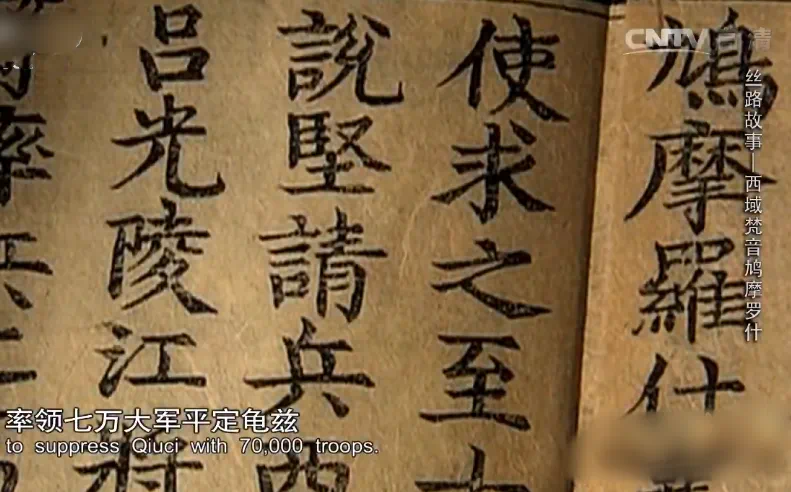 鳩摩羅什
使求之至
說堅請兵西
呂光陵江將
率兵
CNTV 高清
丝路故事—西域梵音鸠摩罗什
率领七万大军平定龟兹
to suppress Qiuci with 70,000 troops.